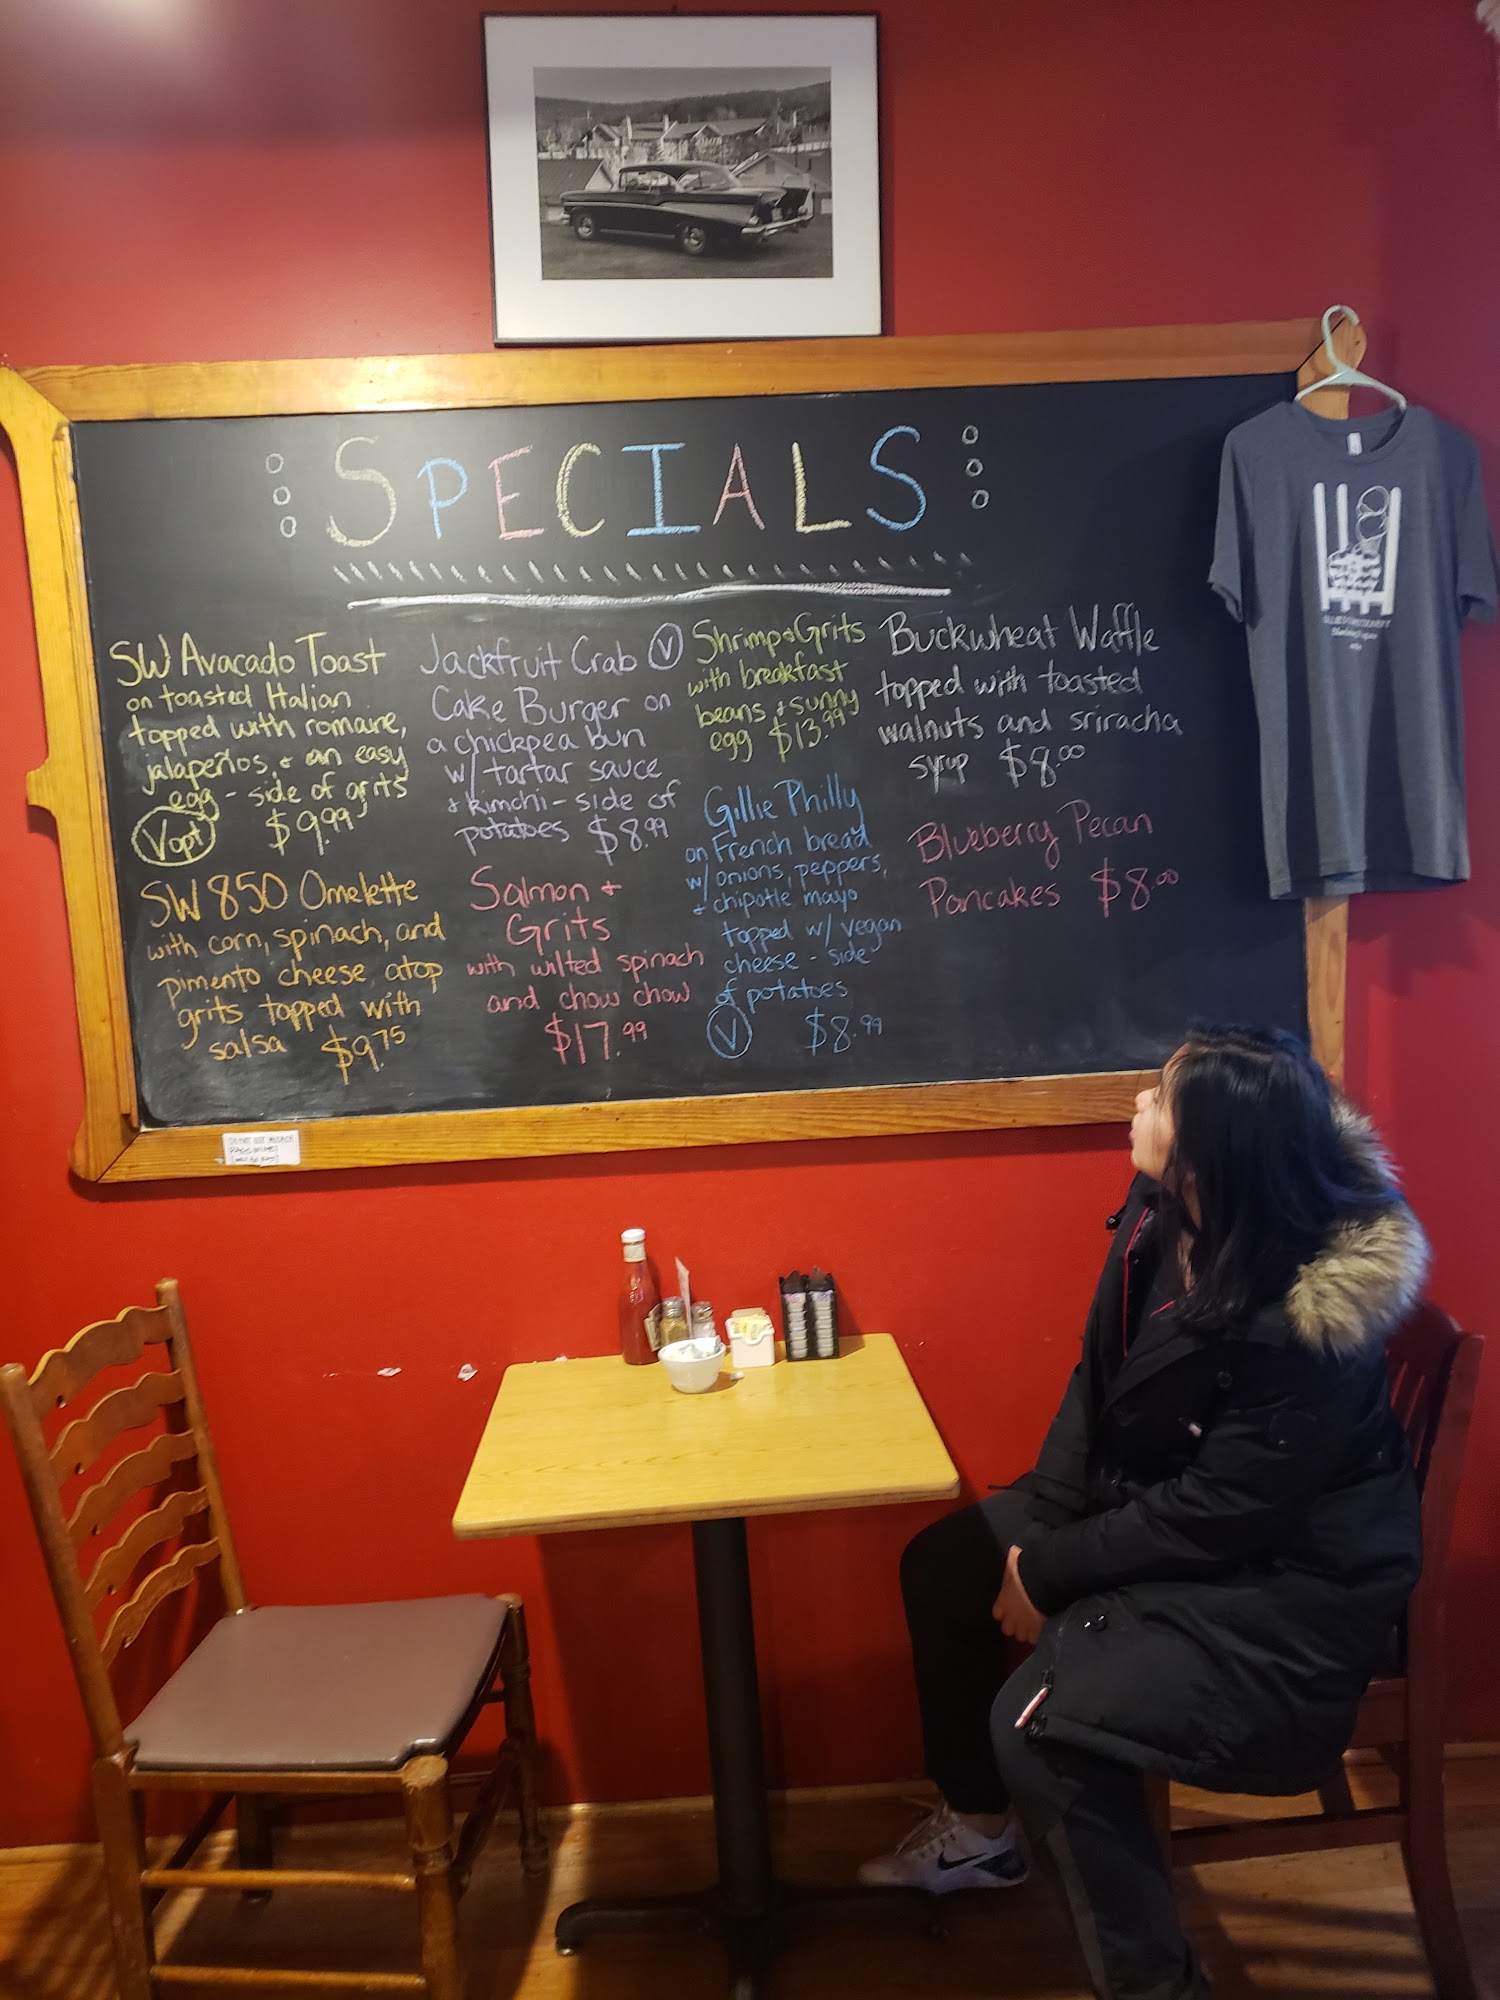 SPECIALS
SW Avacado Toast
on toasted Italian
topped with romaine,
jalapeños, + an easy
egg - side of grits
V opt $9.99
SW 850 Omelette
with corn, spinach, and
pimento cheese atop
grits topped with
salsa $9.75
Jackfruit Crab V
Cake Burger on
a chickpea bun
w/ tartar sauce
+ kimchi - side of
potatoes $8.99
Salmon +
Grits
with wilted spinach
and chow chow
$17.99
Shrimp + Grits
with breakfast
beans + sunny
egg $13.99
Gillie Philly
on French bread
w/ onions, peppers,
+ chipotle mayo
topped w/ vegan
cheese - side
of potatoes
V $8.99
Buckwheat Waffle
topped with toasted
walnuts and sriracha
syrup $8.00
Blueberry Pecan
Pancakes $8.00